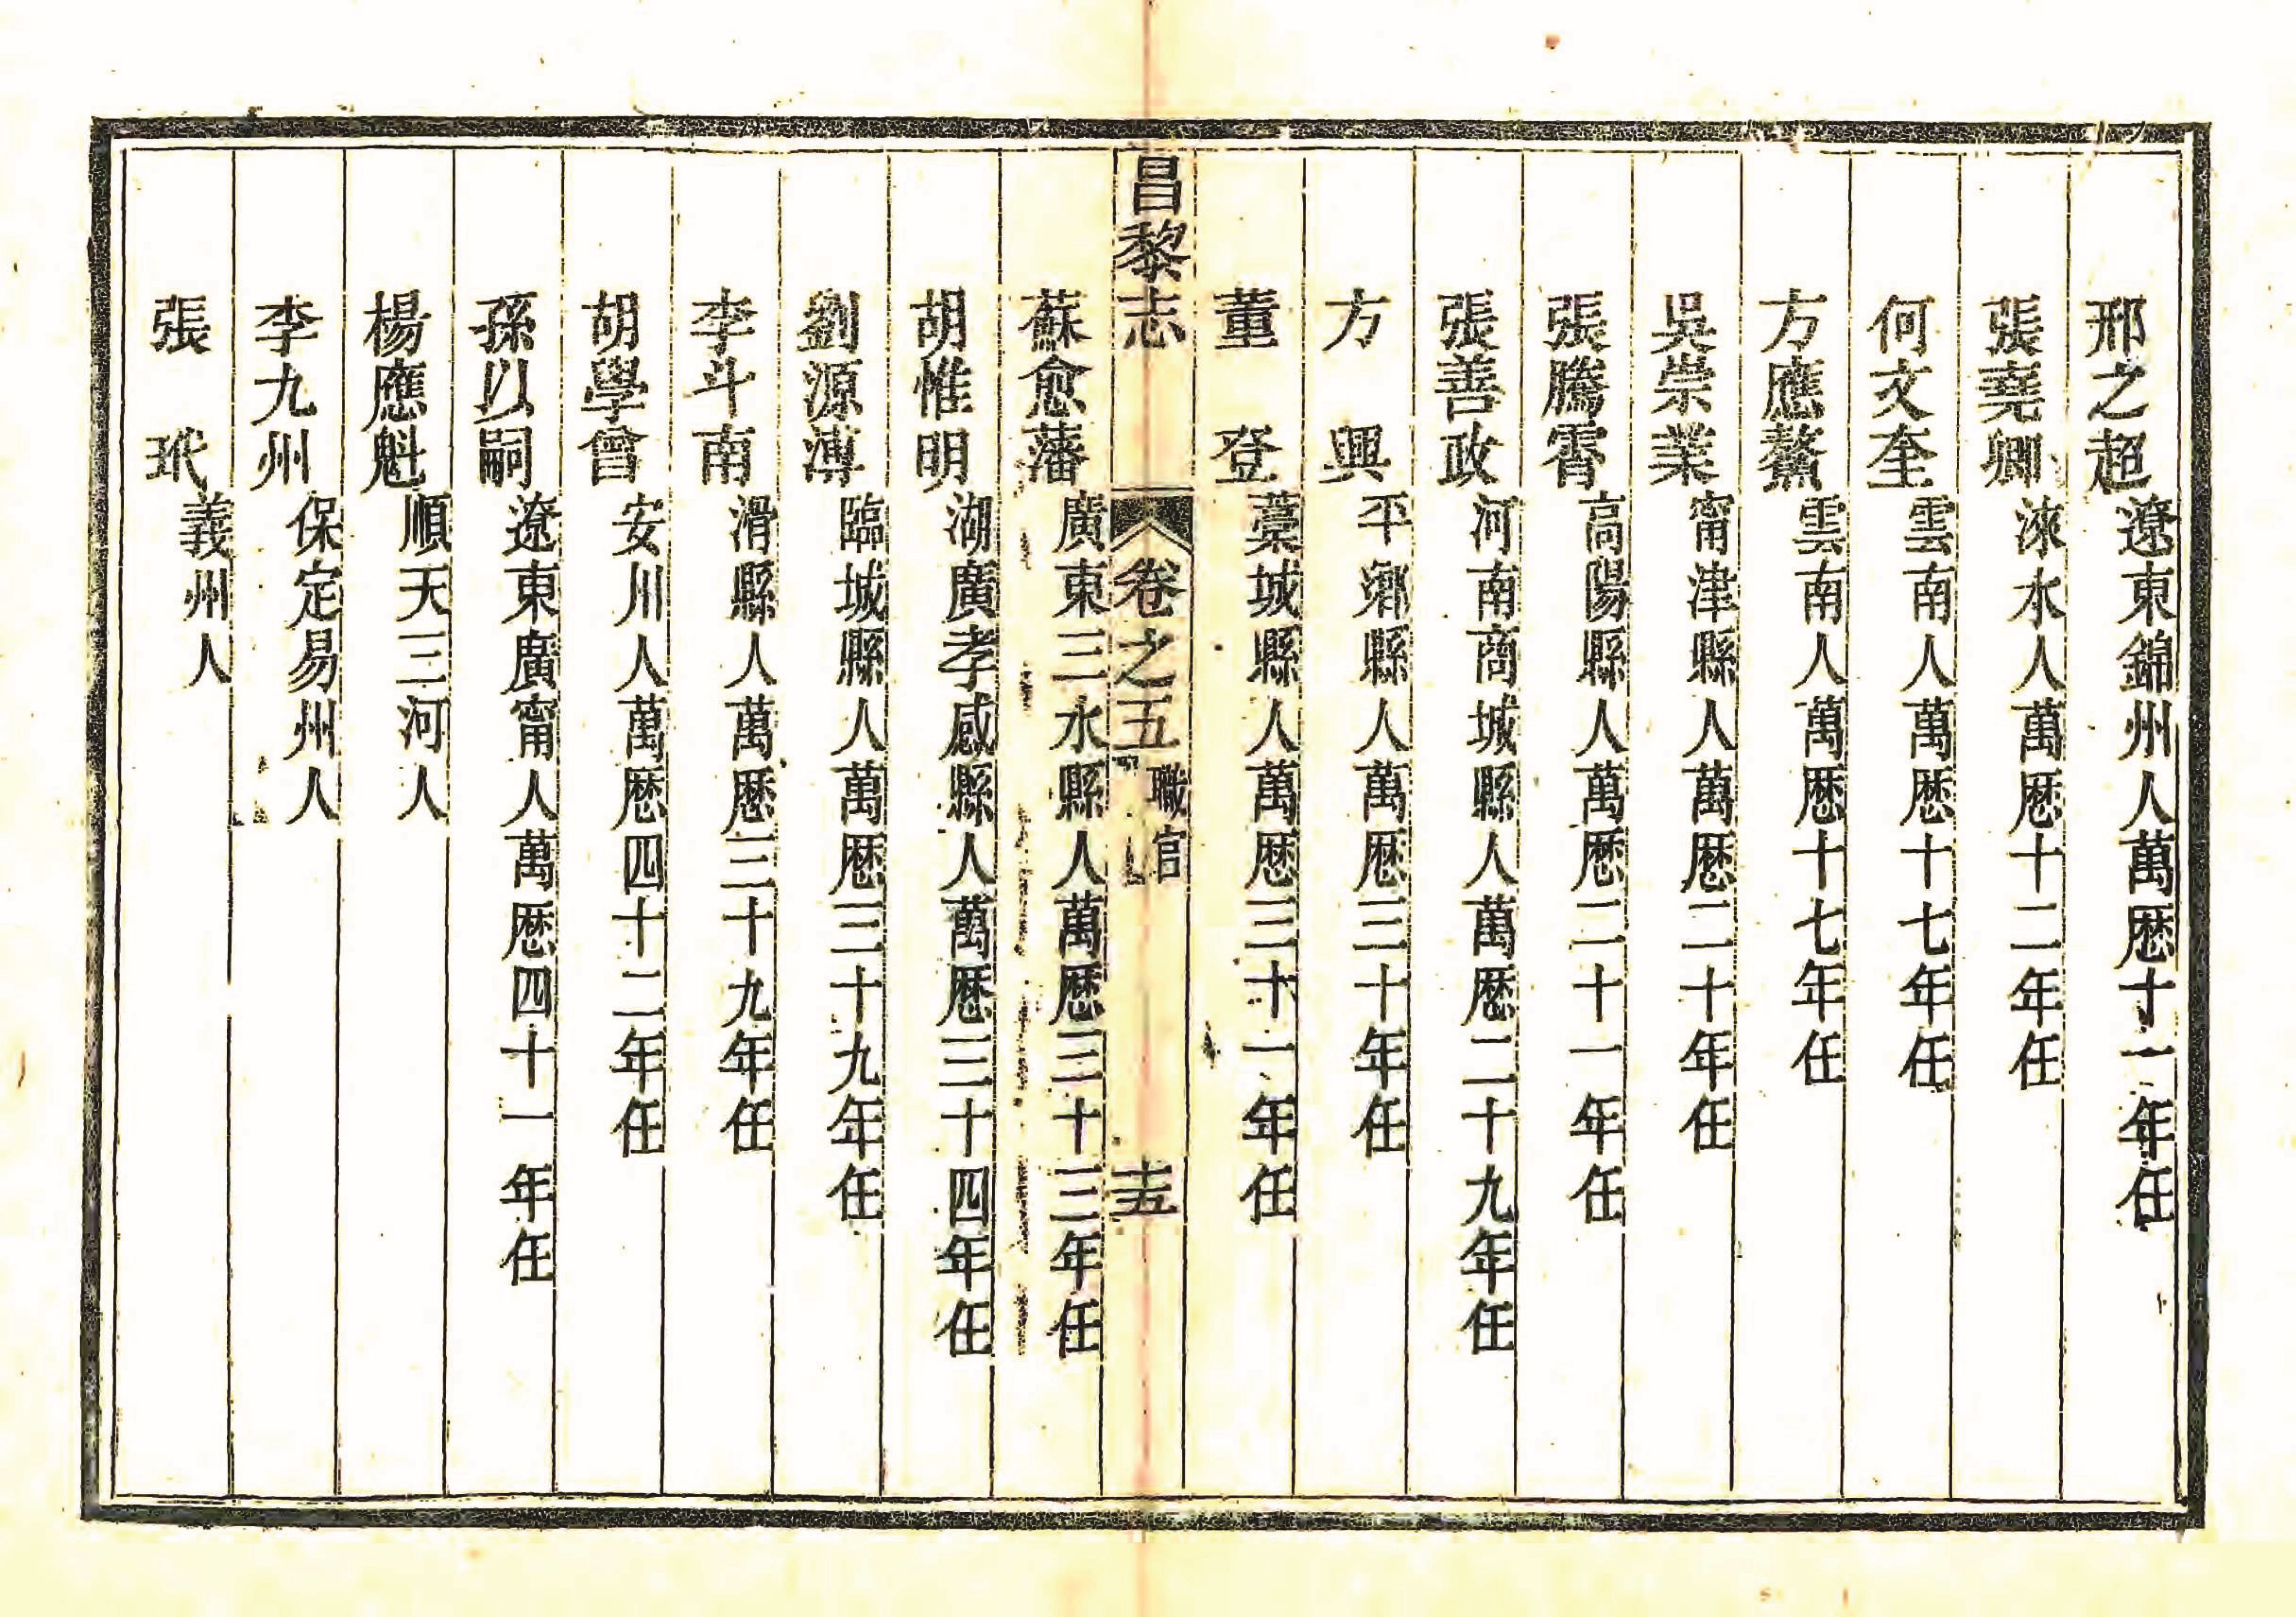 邢之超 遼東錦州人萬厯十一年任
張堯卿 淶水人萬厯十二年任
何文奎 雲南人萬厯十七年任
方應鰲 雲南人萬厯十七年任
吳崇業 甯津縣人萬厯二十年任
張騰霄 高陽縣人萬厯二十一年任
張善政 河南商城縣人萬厯二十九年任
方興 平鄉縣人萬厯三十年任
董登 藁城縣人萬厯三十一年任
昌黎志 卷之五 職官 十五
蘇愈藩 廣東三水縣人萬厯三十三年任
胡惟明 湖廣孝感縣人萬厯三十四年任
劉源溥 臨城縣人萬厯三十九年任
李斗南 滑縣人萬厯三十九年任
胡學曾 安川人萬厯四十二年任
孫以嗣 遼東廣甯人萬厯四十一年任
楊應魁 順天三河人
李九州 保定易州人
張玳 義州人